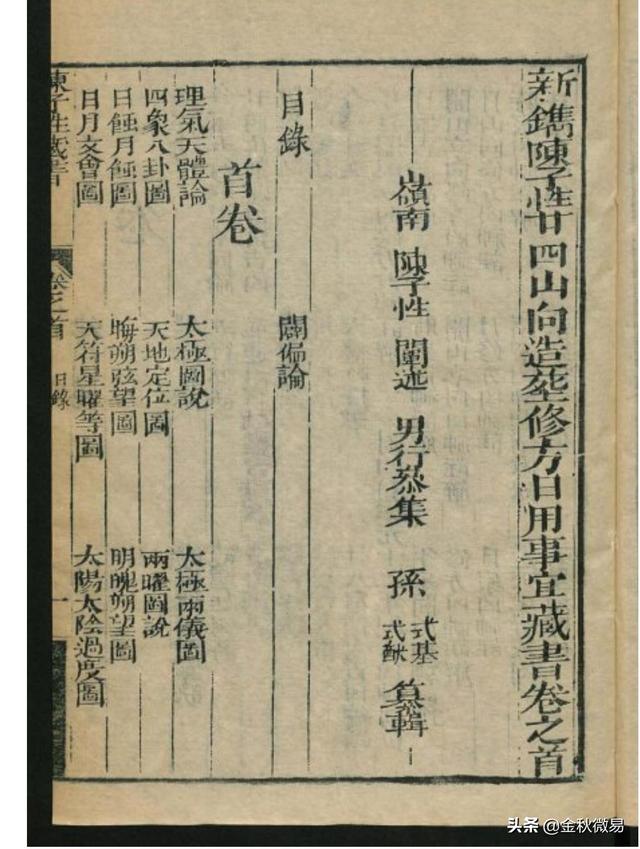 新鐫陳子性廿四山向造葬修方日用事宜藏書卷之首
嶺南 陳子性 闡述 男行慕集 孫 式基 式猷 纂輯
目錄 闢偏論
首卷
理氣天體論 太極圖說 太極兩儀圖
四象八卦圖 天地定位圖 兩曜圖說
日蝕月蝕圖 晦朔弦望圖 明魄朔望圖
日月交會圖 天符星曜等圖 太陽太陰過度圖
陳子性藏書 卷之首 目錄 一
头条 @金秋微易